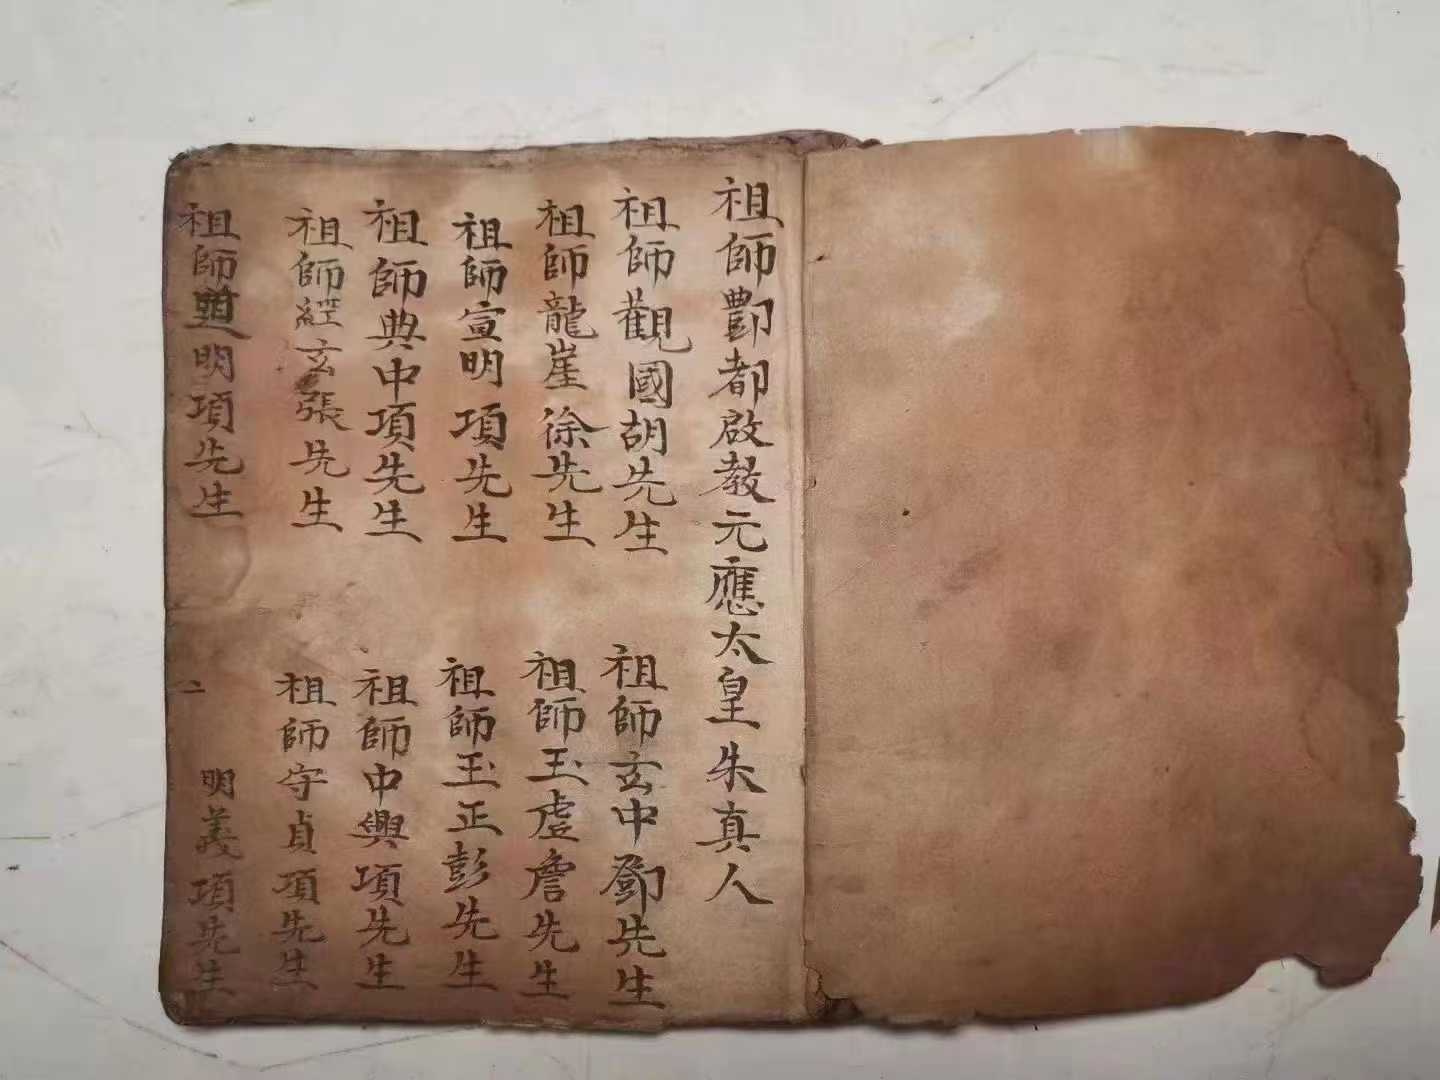 祖師酆都啟教元應太皇朱真人
祖師觀國胡先生
祖師玄中鄧先生
祖師龍崖徐先生
祖師玉虛詹先生
祖師宣明項先生
祖師玉正彭先生
祖師典中項先生
祖師中興項先生
祖師經玄張先生
祖師守貞項先生
祖師道明項先生
二 明義項先生